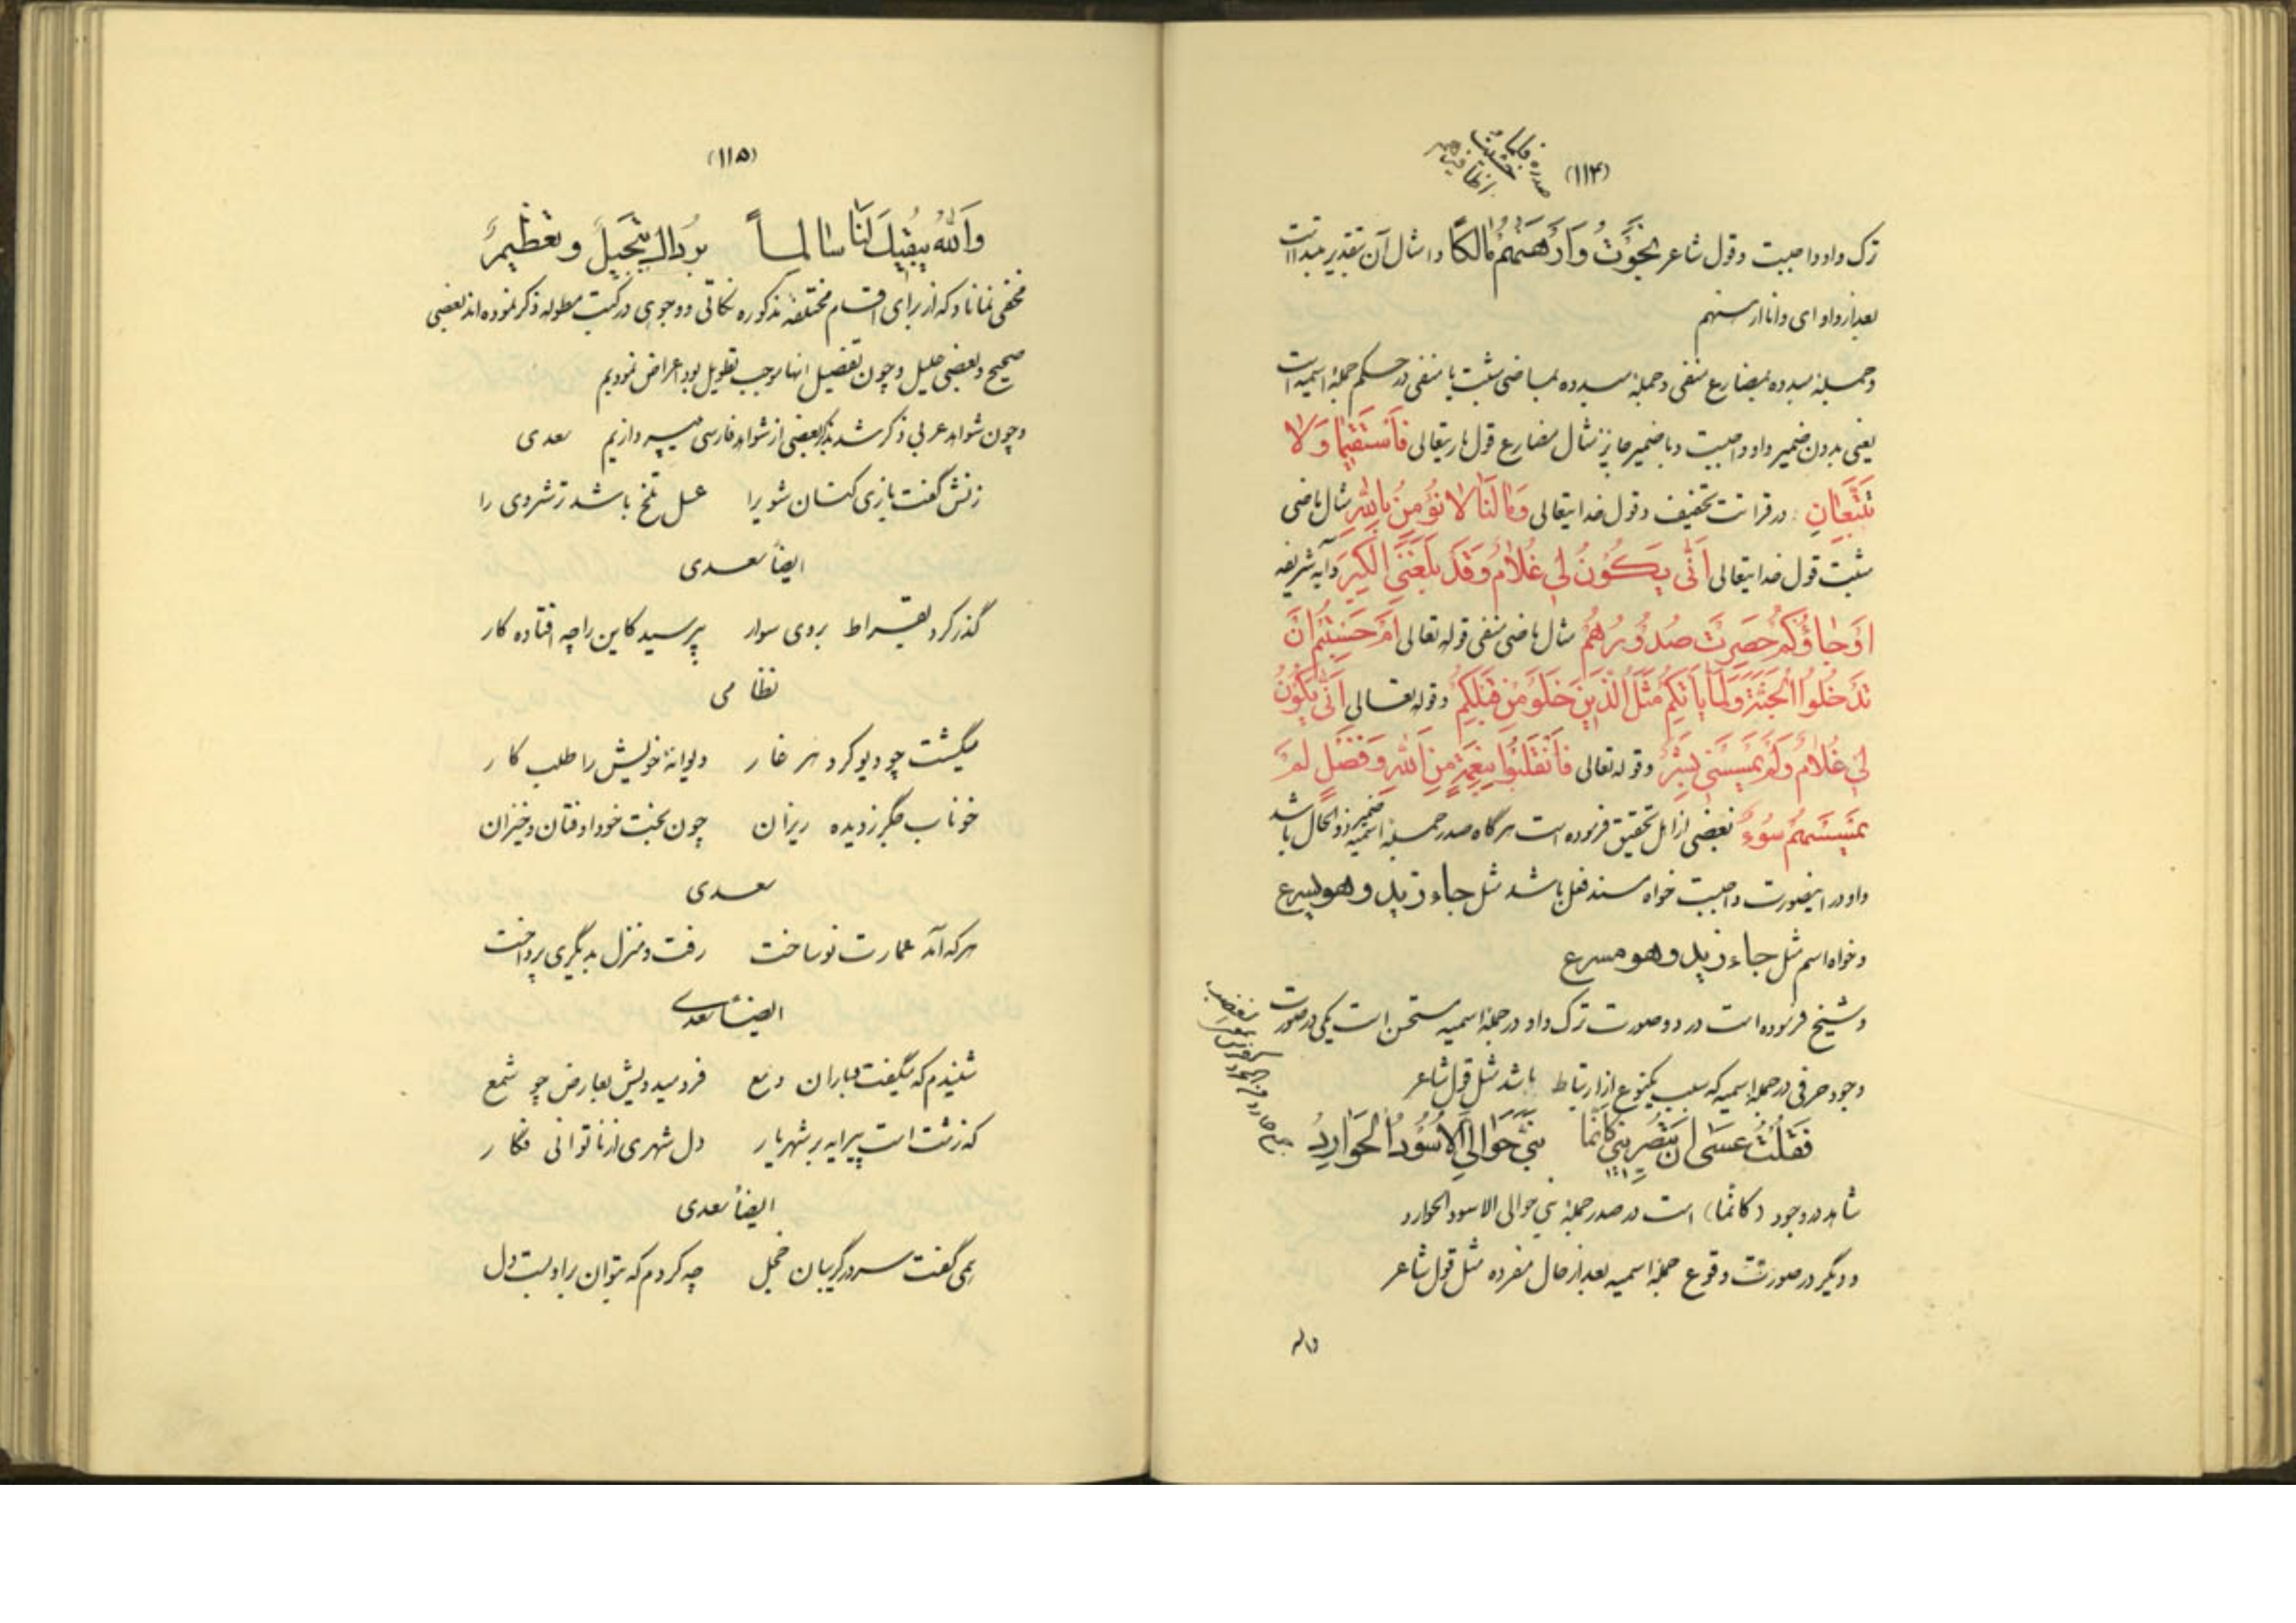 (۱۱۴)
صدره فلما خشیت اظافیرهم
ترک واو واجبست و قول شاعر نَجَوْتُ وَاَرْهَنُهُمْ مٰالِکاً و امثال آن بتقدیر مبتدا است
بعد از واو ای و انا ارهنهم
و جمله مبدوه بمضارع منفی و جمله مبدوه بماضی مثبت یا منفی در حکم جمله اسمیه است
یعنی بدون ضمیر واو واجبست و با ضمیر جایز مثال مضارع قول باریتعالی فَاسْتَقیمٰا وَلاٰ
تَتَّبِعٰانِ در قرائت تخفیف و قول خدایتعالی وَمٰا لَنٰا لاٰ نُؤْمِنُ بِاللّٰهِ مثال ماضی
مثبت قول خدایتعالی اَنّٰی یَکُونُ لی غُلاٰمٌ وَقَدْ بَلَغَنِیَ الْکِبَرُ و آیه شریفه
اَوْ جٰاؤُکُمْ حَصِرَتْ صُدُورُهُمْ مثال ماضی منفی قوله تعالی اَمْ حَسِبْتُمْ اَنْ
تَدْخُلُوا الْجَنَّةَ وَلَمّٰا یَأْتِکُمْ مَثَلُ الَّذینَ خَلَوْا مِنْ قَبْلِکُمْ و قوله تعالی اَنّٰی یَکُونُ
لی غُلاٰمٌ وَلَمْ یَمْسَسْنی بَشَرٌ و قوله تعالی فَانْقَلَبُوا بِنِعْمَةٍ مِنَ اللّٰهِ وَفَضْلٍ لَمْ
یَمْسَسْهُمْ سُوءٌ بعضی از اهل تحقیق فرموده است هرگاه صدر جمله اسمیه ضمیر ذو الحال باشد
واو در اینصورت واجبست خواه مسند فعل باشد مثل جاء زید و هو یسرع
و خواه اسم مثل جاء زید و هو مسرع
و شیخ فرموده است در دو صورت ترک واو در جمله اسمیه مستحسن است یکی در صورت
وجود حرفی در جمله اسمیه که سبب یکنوع از ارتباط باشد مثل قول شاعر
فَقُلْتُ عَسٰی اَنْ تُبْصِرینی کَاَنَّمٰا بَنِیَّ حَوٰالَیَّ الْاُسُودُ الْحَوٰارِدُ
شاهد در وجود (کانّما) است در صدر جمله بنی حوالی الاسود الحوارد
و دیگر در صورت وقوع جمله اسمیه بعد از حال مفرده مثل قول شاعر
واله
(۱۱۵)
وَاللّٰهُ یُبْقیکَ لَنٰا سٰالِماً بُرْدٰاکَ تَبْجیلٌ وَ تَعْظیمٌ
مخفی نماناد که از برای اقسام مختلفه مذکوره نکاتی و وجوهی در کتب مطوله ذکر نموده اند بعضی
صحیح و بعضی علیل و چون تفصیل انها موجب تطویل بود اعراض نمودیم
و چون شواهد عربی ذکر شد بذکر بعضی از شواهد فارسی میپردازیم سعدی
زنش گفت بازی کنان شوی را عسل تلخ باشد ترشروی را
ایضاً سعدی
گذر کرد بقراط بر وی سوار بپرسید کاین را چه افتاده کار
نظامی
میگشت چو دیو گرد هر غار دیوانهٔ خویش را طلب کار
خوناب جگر ز دیده ریزان چون بخت خود اوفتان و خیزان
سعدی
هر که آمد عمارت نو ساخت رفت و منزل بدیگری پرداخت
ایضاً سعدی
شنیدم که میگفت و باران دمع فرو میدویدش بعارض چو شمع
که زشت است پیرایه بر شهریار دل شهری از ناتوانی فکار
ایضاً سعدی
همی گفت سر در گریبان خجل چه کردم که بتوان بر او بست دل